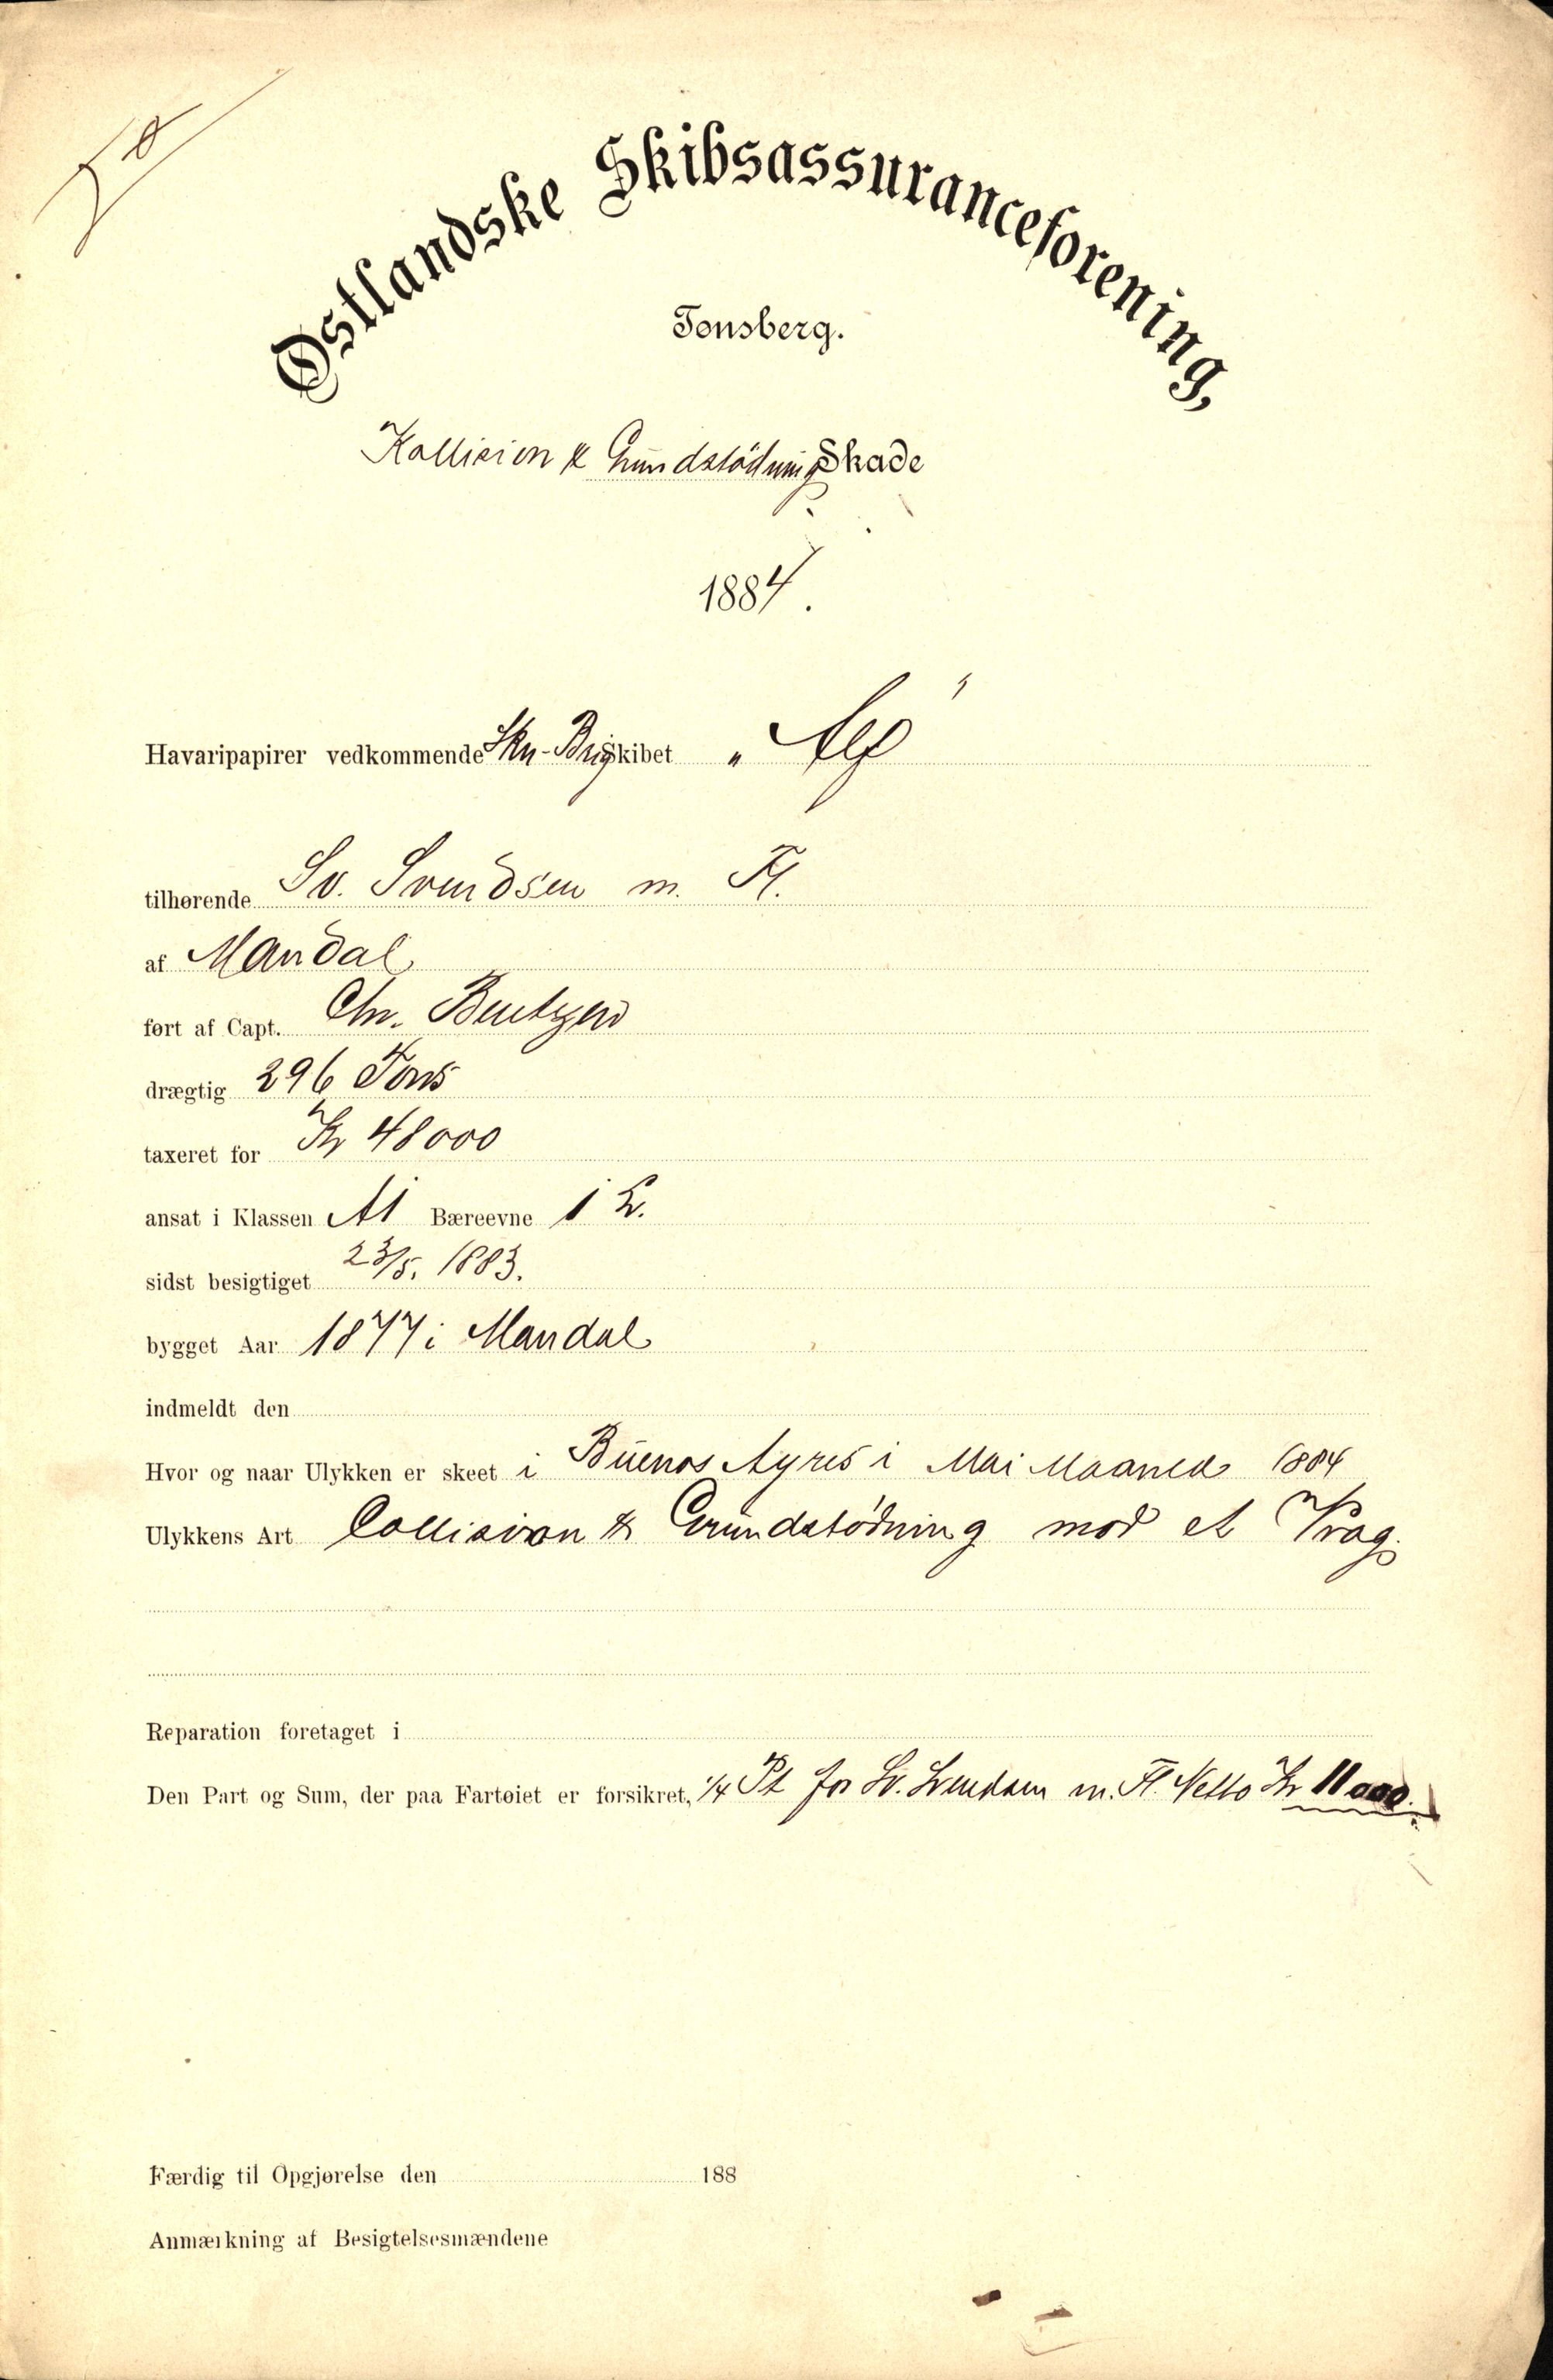 Østlandske Skibsassuranceforening,
Tønsberg.
Kollision & Grundstödning Skade
1884.
Havaripapirer vedkommende Skn-Brig skibet „Alf"
tilhørende Sv. Svendsen m. Fl.
af Mandal
ført af Capt. Chr. Bentzen
drægtig 296 Tons
taxeret for Kr 48000
ansat i Klassen A1 Bæreevne 1
sidst besigtiget 23/5. 1883.
bygget Aar 1877 i Mandal
indmeldt den
Hvor og naar Ulykken er skeet i Buenos Ayres i Mai Maaned 1884
Ulykkens Art Collision & Grundstödning mod et Vrag.
Reparation foretaget i
Den Part og Sum, der paa Fartøiet er forsikret, 1/4 Pt for Sv. Svendsen m. Fl. Netto Kr 11000.
Færdig til Opgjørelse den 188
Anmærkning af Besigtelsesmændene